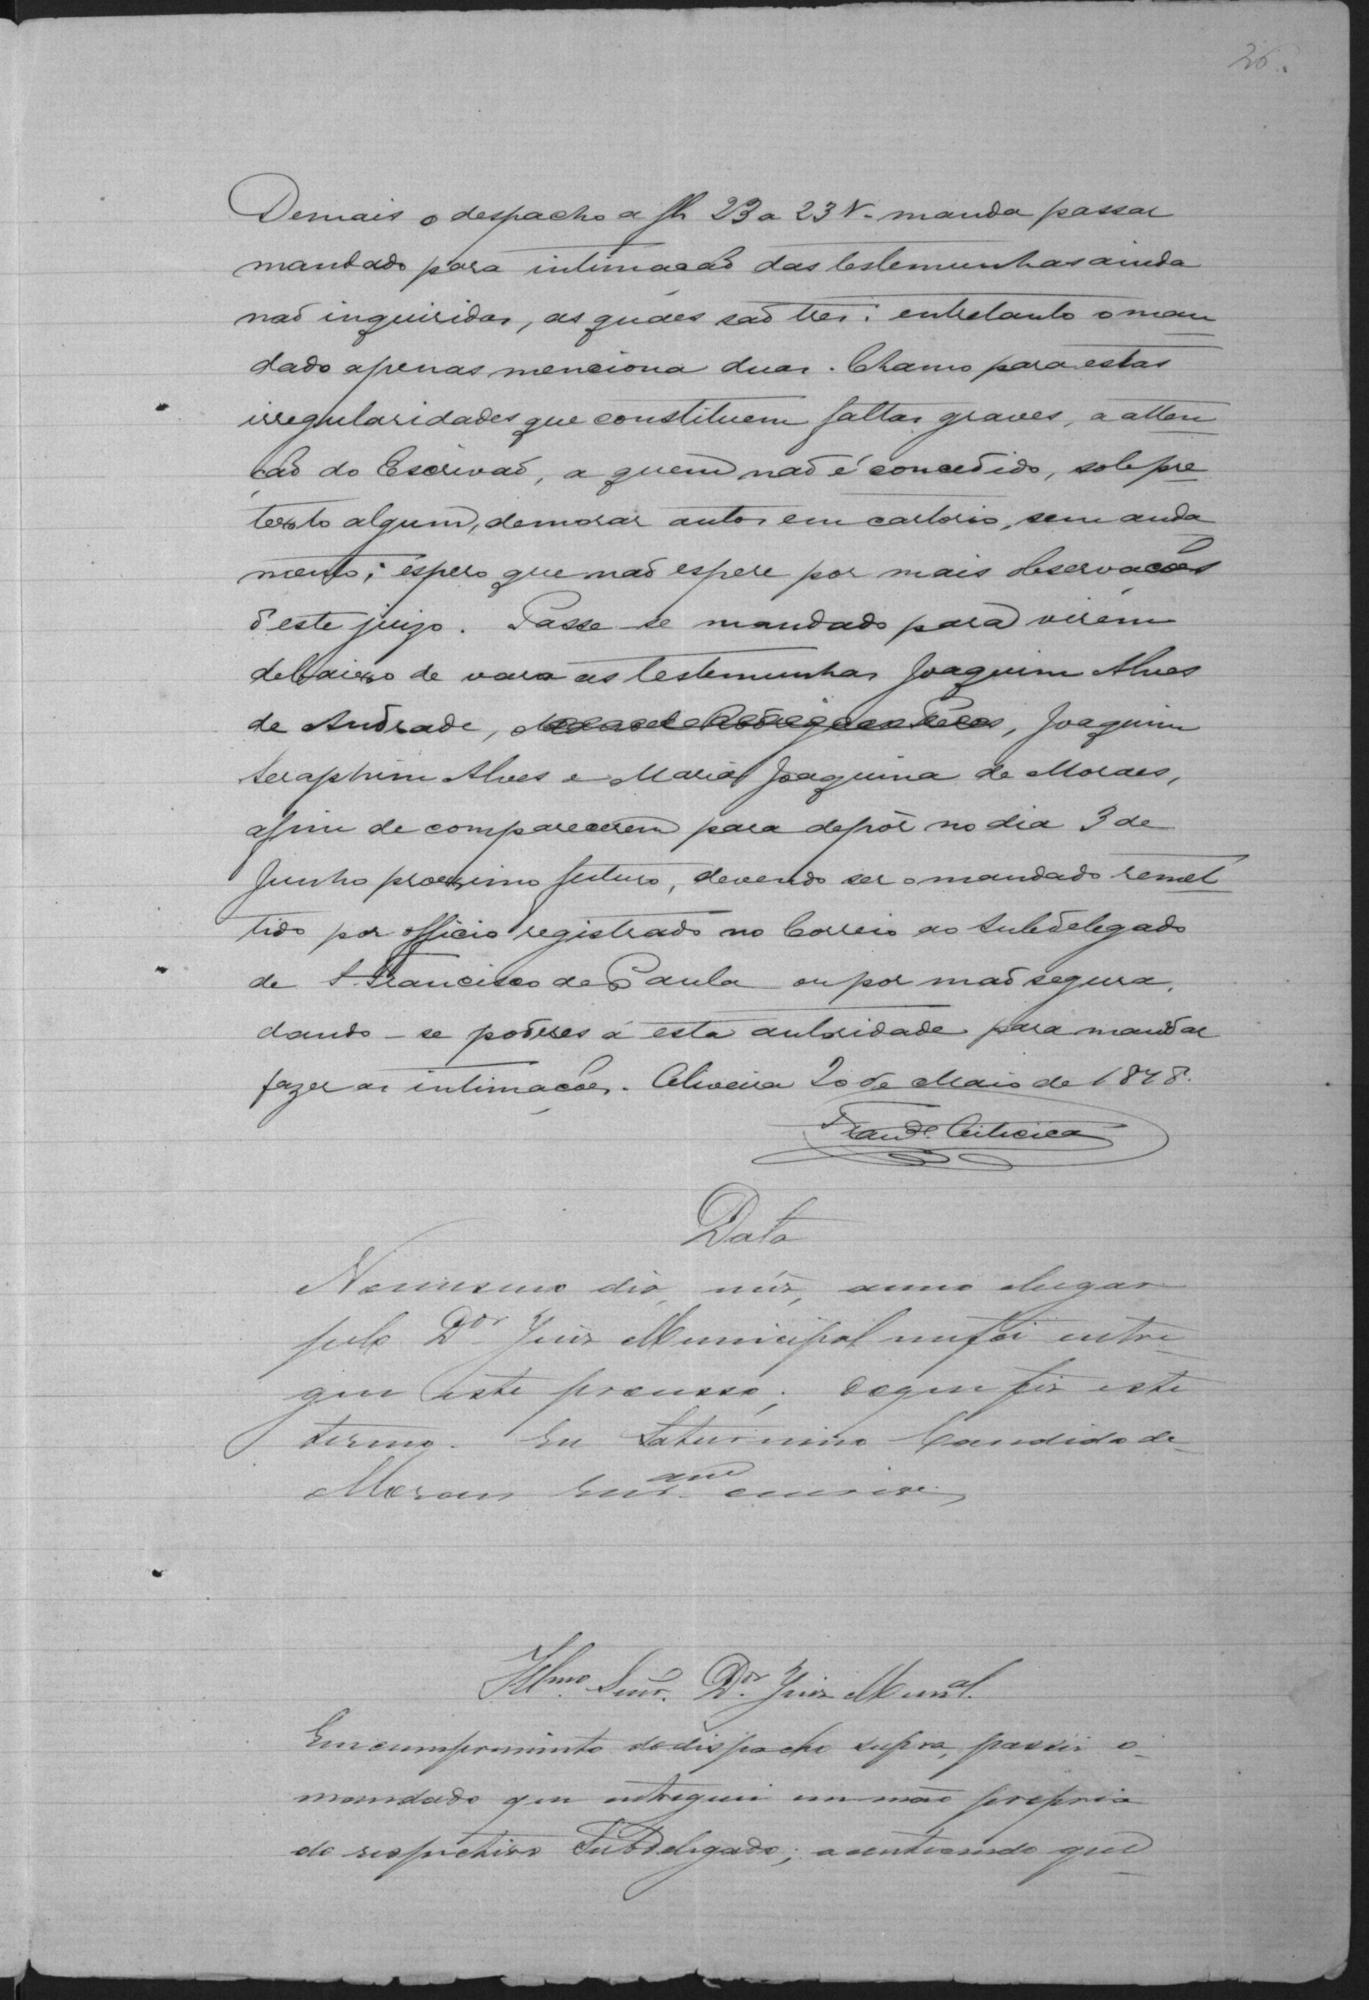 26.
Demais o despacho a fh 23 a 23 V. manda passar
mandado para intimação das testemunhas ainda
naõ inquiridas, as quaes saõ tres: entretanto o man
dado apenas menciona duas. Chamo para estas
irregularidades que constituem faltas graves, a atten
çaõ do Escrivaõ, a quem naõ é concedido, sob pre
texto algum, demorar autos em cartorio, sem anda
mento; espero que naõ espere por mais observações
d'este juizo. Passe-se mandado para virem
debaixo de vara as testemunhas Joaquim Alves
de Andrade, Joaquim
Seraphim Alves e Maria Joaquina de Moraes,
afim de comparecerem para depôr no dia 3 de
Junho proximo futuro, devendo ser o mandado remet
tido por officio registrado no Correio ao Subdelegado
de S. Francisco de Paula ou por maõ segura,
dando-se poderes á esta autoridade para mandar
fazer as intimações. Oliveira 20 de Maio de 1878.
Data
No mesmo dia, mês, anno e lugar
pelo Dor Juis Municipal me foi entre
gue este processo; do que fis este
termo. Eu Saturnino Candido de
Moraes Escram escrivi
Illmo Senr. Dor Juis Munal.
Em cumprimento do dispacho supra, passei o
mandado que entreguei em mão propria
do respectivo Subdelegado; acontecendo que